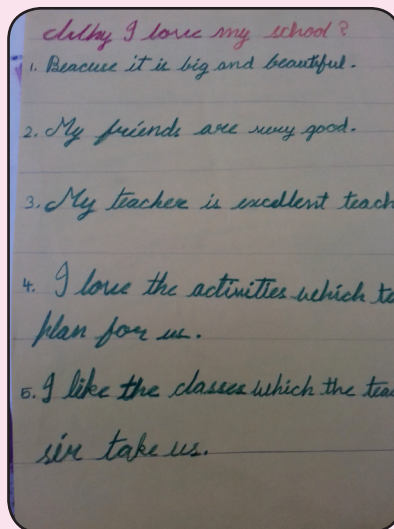 Why I love my school?
1. Beacuse it is big and beautiful.
2. My friends are very good.
3. My teacher is excellent teach
4. I love the activities which te
plan for us.
5. I like the classes which the tea
sir take us.